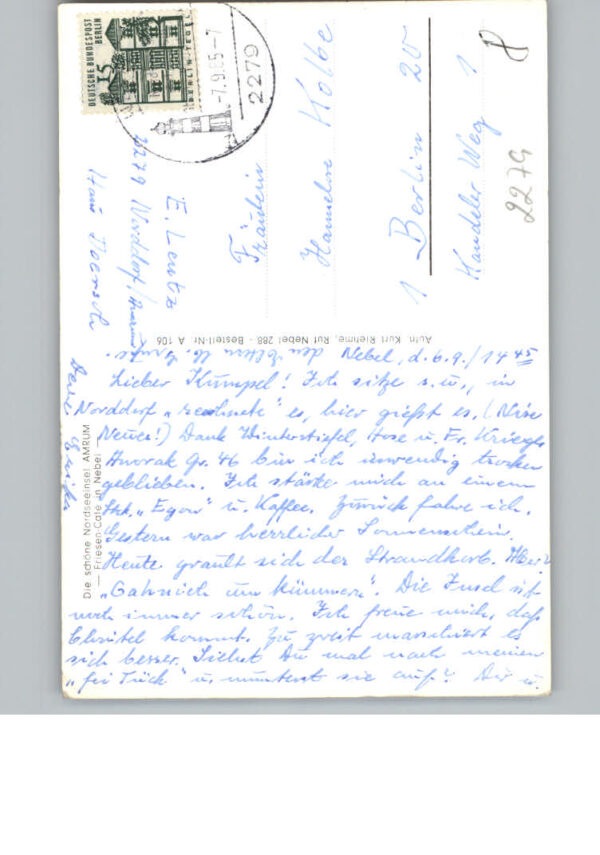 DEUTSCHE BUNDESPOST
BERLIN
15
BERLIN-TEGEL
-7.9.65-7
2279
E. Lentz
2279 Norddorf/Amrum
Haus
Fräulein
Hannelore Kolbe
1 Berlin 20
Kandeler Weg 1
8
2279
Aufn. Kurt Riehme, Ruf Nebel 288 - Bestell-Nr. A 106
Die schöne Nordseeinsel AMRUM
— Friesen-Café in Nebel —
Nebel, d. 6.9./14 45
Lieber Kumpel! Ich sitze s.u., in
Norddorf „rechnete" es, hier gießt es. (Nix
Neues!) Dank Winterstiefel, Hose u. Fr. Kriegers
Anorak Gr. 46 bin ich inwendig trocken
geblieben. Ich stärke mich an einem
Stk. „Egon" u. Kaffee. Zurück fahre ich.
Gestern war herrlicher Sonnenschein.
Heute grault sich der Strandkorb. Aber:
„Gahnich um kümmern". Die Insel ist
noch immer schön. Ich freue mich, daß
Christel kommt. Zu zweit marschiert es
sich besser. Siehst Du mal nach meinen
„fei Tück" u. munterst sie auf? Dir u.
den Eltern lb. Grüße.
Deine